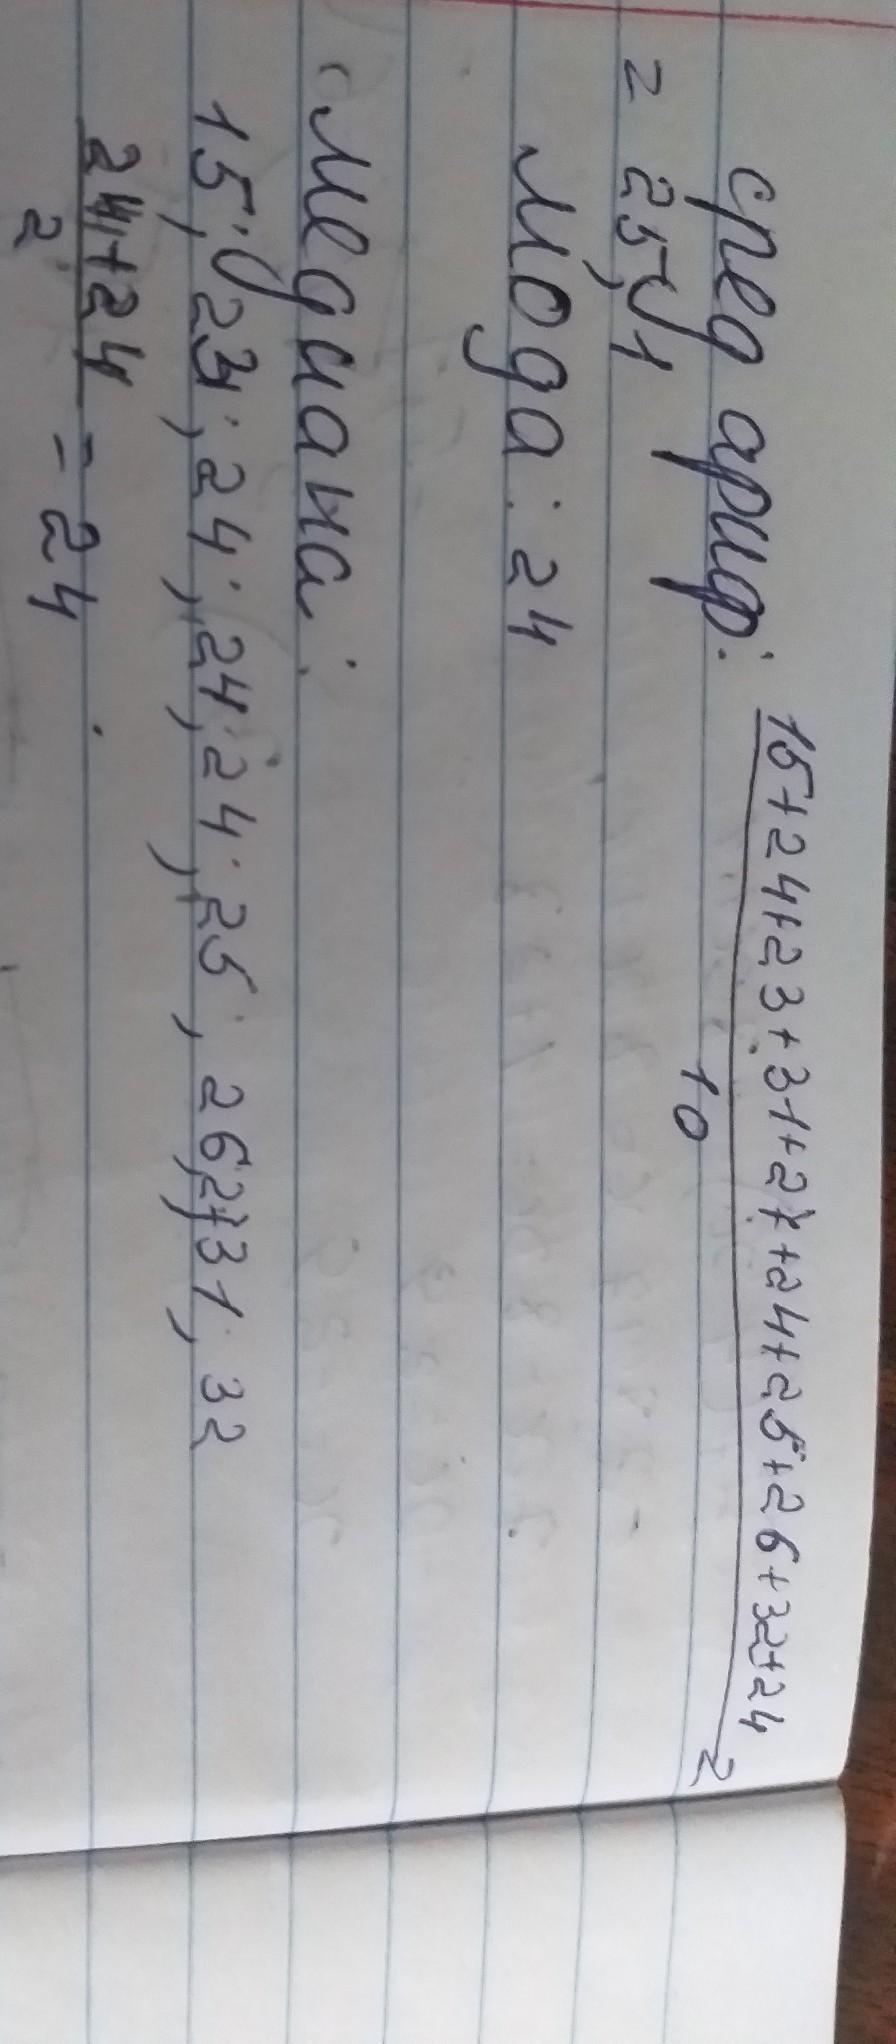 сред ариф: 15+24+23+31+27+24+25+26+32+24 =
10
= 25,1
Мода: 24
Медиана:
15; 23; 24; 24; 24; 25; 26; 27; 31; 32
24+24 = 24
2